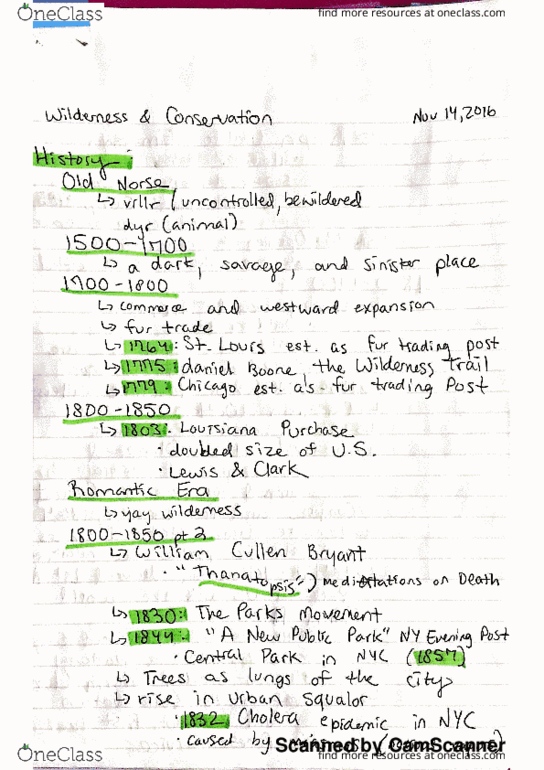 OneClass
find more resources at oneclass.com
Wilderness & Conservation
Nov 14, 2016
History:
Old Norse
↳ vrllr (uncontrolled, bewildered
dyr (animal)
1500-1700
↳ a dark, savage, and sinister place
1700-1800
↳ commerce and westward expansion
↳ fur trade
↳ 1764: St. Lours est. as fur trading post
↳ 1775: daniel Boone, the Wilderness Trail
↳ 1779: Chicago est. as fur trading Post
1800-1850
↳ 1803: Lousiana Purchase
· doubled size of U.S.
· Lewis & Clark
Romantic Era
↳ yay wilderness
1800-1850 pt 2
↳ William Cullen Bryant
· "Thanatopsis") meditations on Death
↳ 1830: The Parks Movement
↳ 1844: "A New Public Park" NY Evening Post
· Central Park in NYC (1857)
↳ Trees as lungs of the city
↳ rise in Urban Squalor
· 1832 Cholera epidemic in NYC
· caused by
Scanned by CamScanner
OneClass
find more resources at oneclass.com